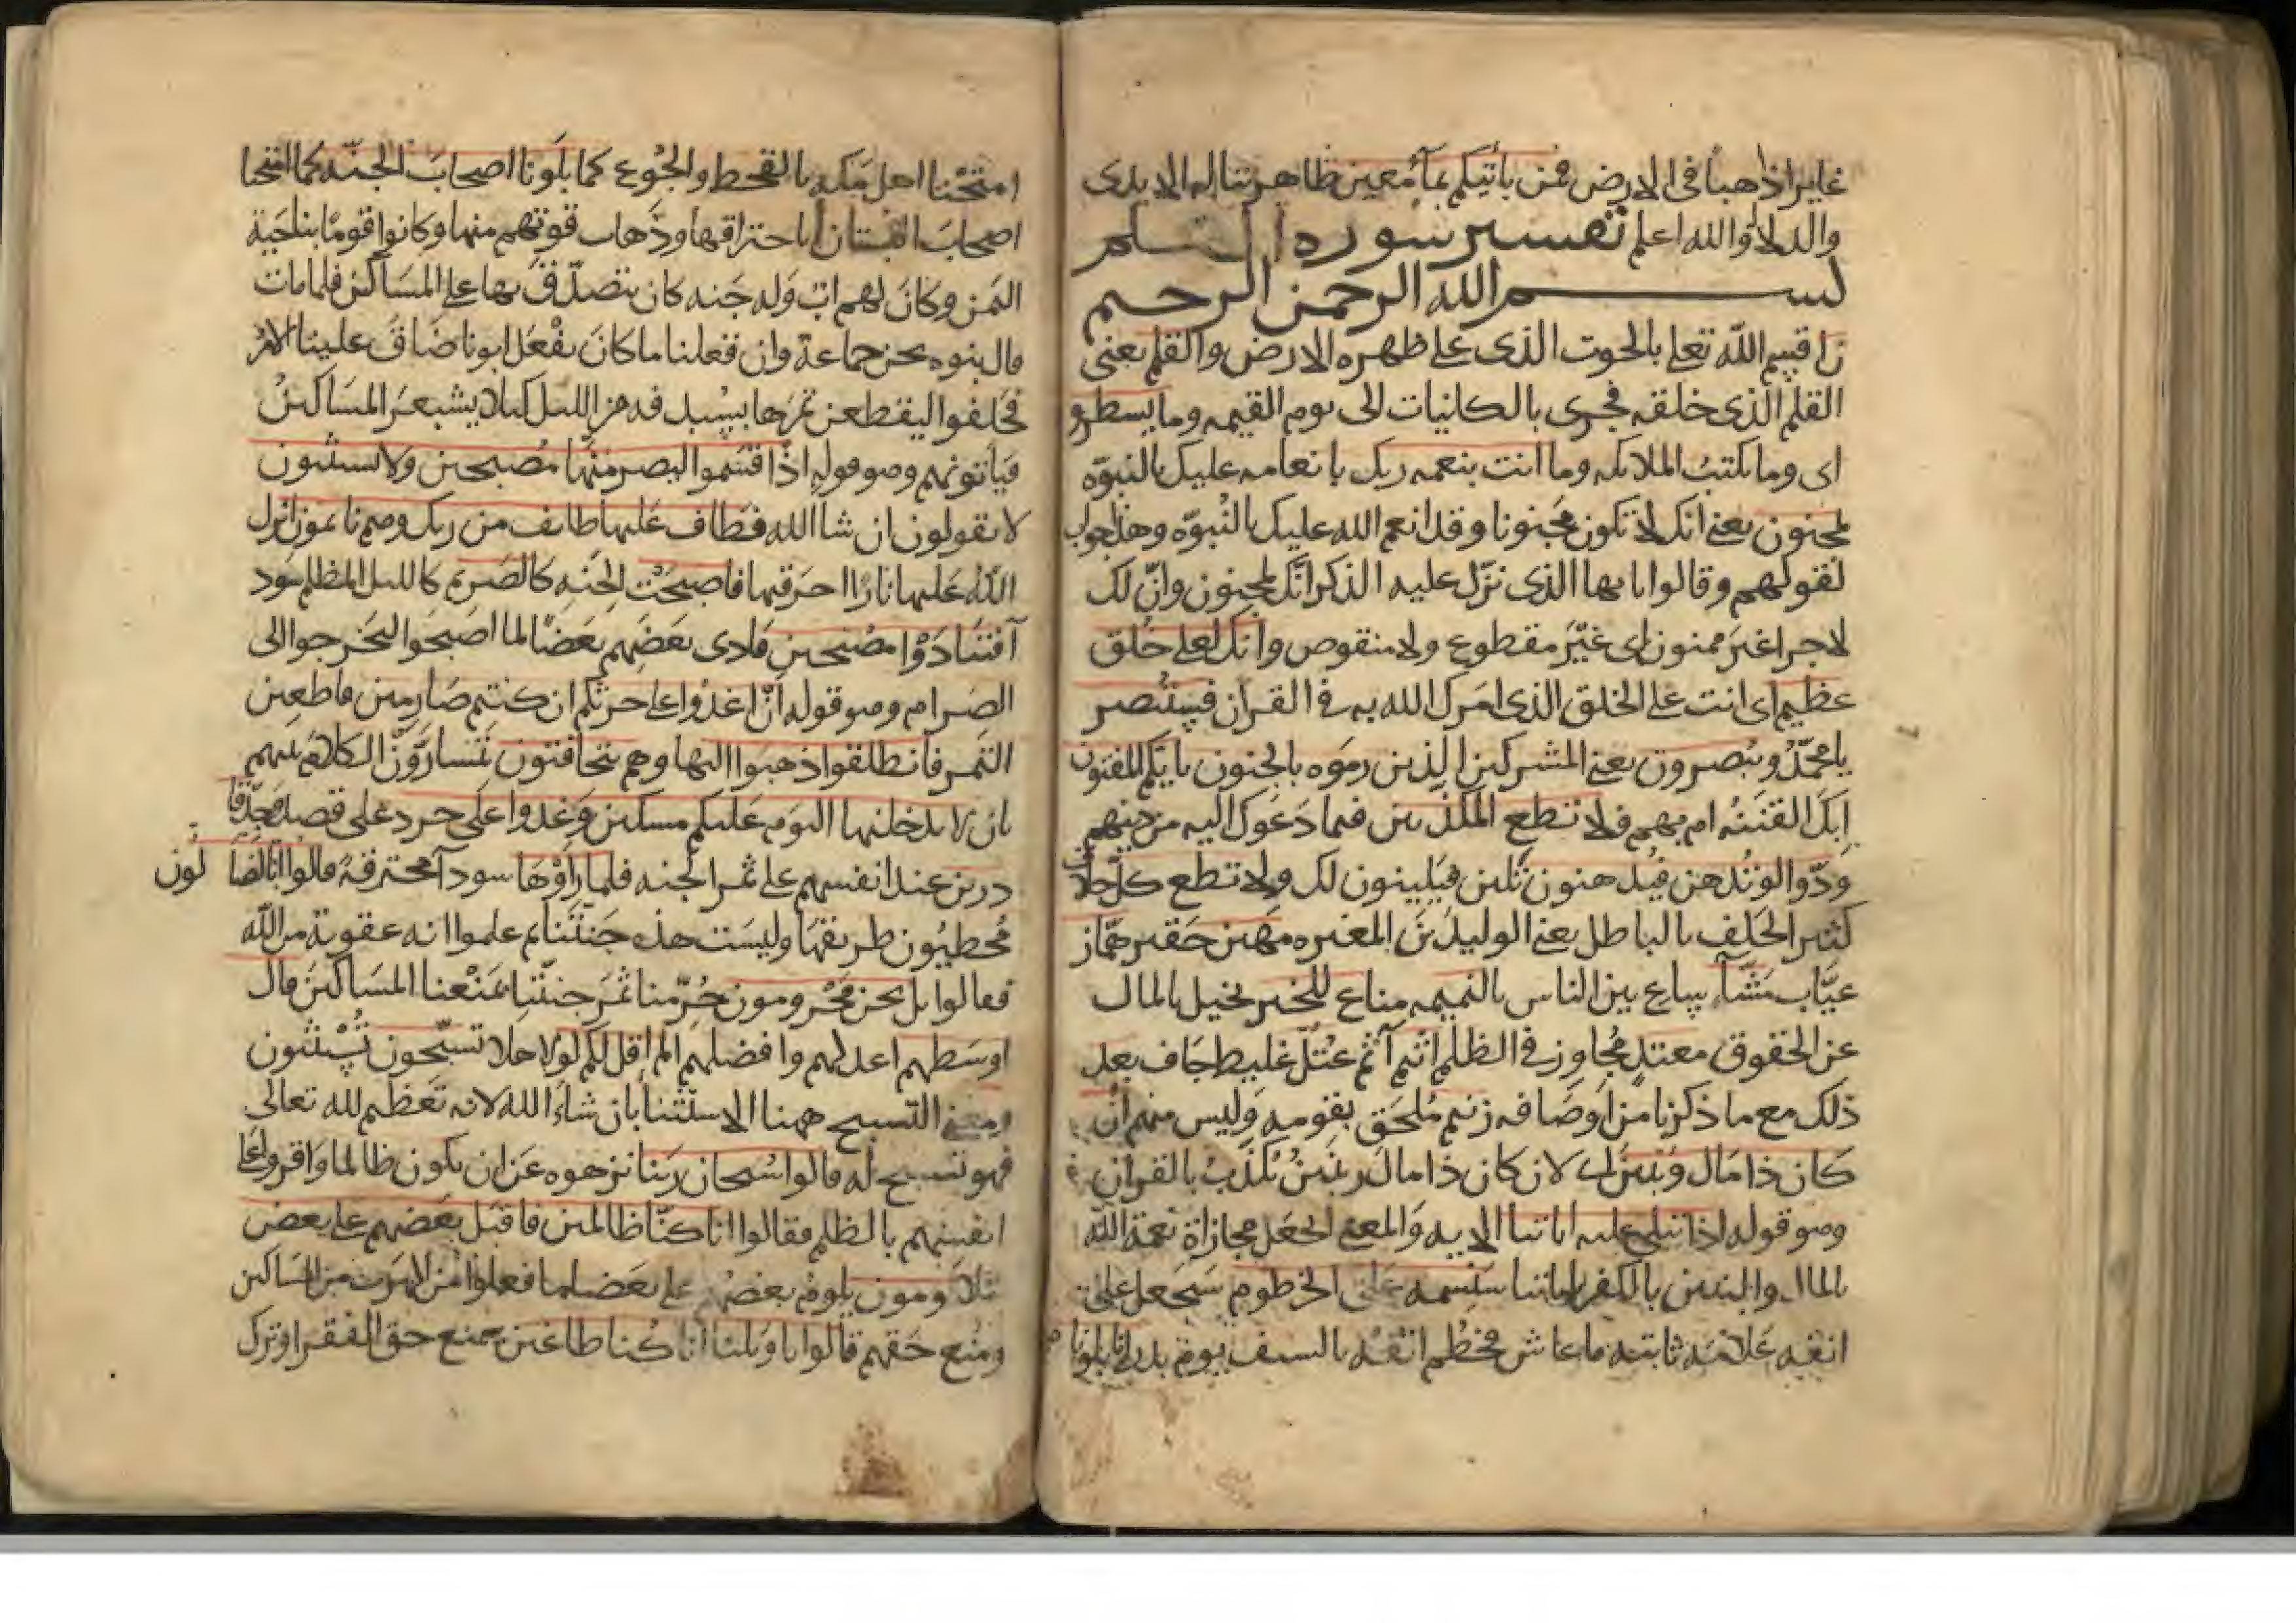 غايرا ذاهبا في الارض فمن ياتيكم بماء معين ظاهر تناله الايدى
والدلاء والله اعلم تفسير سورة القلم
بسم الله الرحمن الرحيم
ن اقسم الله تعلى بالحوت الذى على ظهره الارض والقلم يعنى
القلم الذى خلقه فجرى بالكاينات الى يوم القيمه وما يسطرو
اى وما يكتب الملائكه وما انت بنعمه ربك بانعامه عليك بالنبوّه
بمجنون يعنى انك لا تكون مجنونا وقد انعم الله عليك بالنبوّه وهذا جواب
لقولهم وقالوا يايها الذى نزّل عليه الذكر انّك لمجنون وانّ لك
لاجرا غير ممنون اى غيْر مقطوع ولا منقوص وانك لعلى خلق
عظيم اى انت على الخلق الذى امرك الله به في القران فستبصر
يا محمّد ويبصرون يعنى المشركين الذين رموه بالجنون بايكم المفتون
ابك الفتنه ام بهم فلا تطع المكذبين فيما دعوك اليه من دينهم
ودّوا لو تدهن فيدهنون تلين فيلينون لك ولا تطع كل حلاف
كثير الحلف بالباطل يعنى الوليد بن المغيره مهين حقير همّاز
عيّاب مشّاء يسعى بين الناس بالنميمه مناع للخير بخيل بالمال
عن الحقوق معتد مجاوز في الظلم اثيم آثم عتلّ غليظ جاف بعد
ذلك مع ما ذكرنا من اوصافه زنيم ملحق بقومه وليس منهم ان
كان ذا مال وبنين اى لان كان ذا مال وبنين يكذّب بالقران
وهو قوله اذا تتلى عليه اياتنا الايه والمعنى اتجعل مجازاة نعمة الله
بالمال والبنين بالكفر باياتنا سنسمه على الخرطوم سنجعل على
انفه علامه ثابته ما عاش فخطم انفه بالسيف يوم بدر انا بلوناهم
امتحنّا اهل مكه بالقحط والجوع كما بلونا اصحاب الجنّه كما امتحنا
اصحاب البستان باحتراقها وذهاب قوتهم منها وكانوا قوما بناحية
اليمن وكان لهم اب وله جنه كان يتصدّق بها على المساكين فلما مات
قال بنوه نحن جماعة وان فعلنا ما كان يفعل ابونا ضاق علينا الامر
فحلفوا ليقطعن ثمرها بسدف من الليل كيلا يشعر المساكين
فياتونهم وهو قوله اذ اقسموا ليصرمنّها مصبحين ولا يستثنون
لا يقولون ان شا الله فطاف عليها طايف من ربك وهم نايمون انزل
الله عليها نارا احرقتها فاصبحت الجنه كالصريم كالليل المظلم سود
آ فتنادوْا مصبحين نادى بعضهم بعضا لما اصبحوا ليخرجوا الى
الصرام وهو قوله ان اغدوا على حرثكم ان كنتم صارمين قاطعين
الثمر فانطلقوا ذهبوا اليها وهم يتخافتون يتسارّون الكلام بينهم
بان لا يدخلنها اليوم عليكم مسكين وغدوا على حرد على قصد وجدّ قا
درين عند انفسهم على ثمر الجنه فلما رأوْها سودآ محترقة قالوا انا لضالون
مخطيون طريقها وليست هذه جنّتنا ثم علموا انه عقوبة من الله
فقالوا بل نحن محرومون حُرّمنا ثمر جنّتنا بمنعنا المساكين قال
اوسطهم اعدلهم وافضلهم الم اقل لكم لولا هلا تسبّحون تستثنون
ومعنى التسبيح ههنا الاستثنا بان شاء الله لانه تعظيم لله تعالى
فهو تسبيح له قالوا سبحان ربنا نزهوه عن ان يكون ظالما واقروا على
انفسهم بالظلم فقالوا انا كنّا ظالمين فاقبل بعضهم على بعض
يتلاومون يلوم بعضهم على بعض لما فعلوا من الهرب من المساكين
ومنع حقهم قالوا يا ويلنا انا كنا طاغين بمنع حق الفقرا وترك